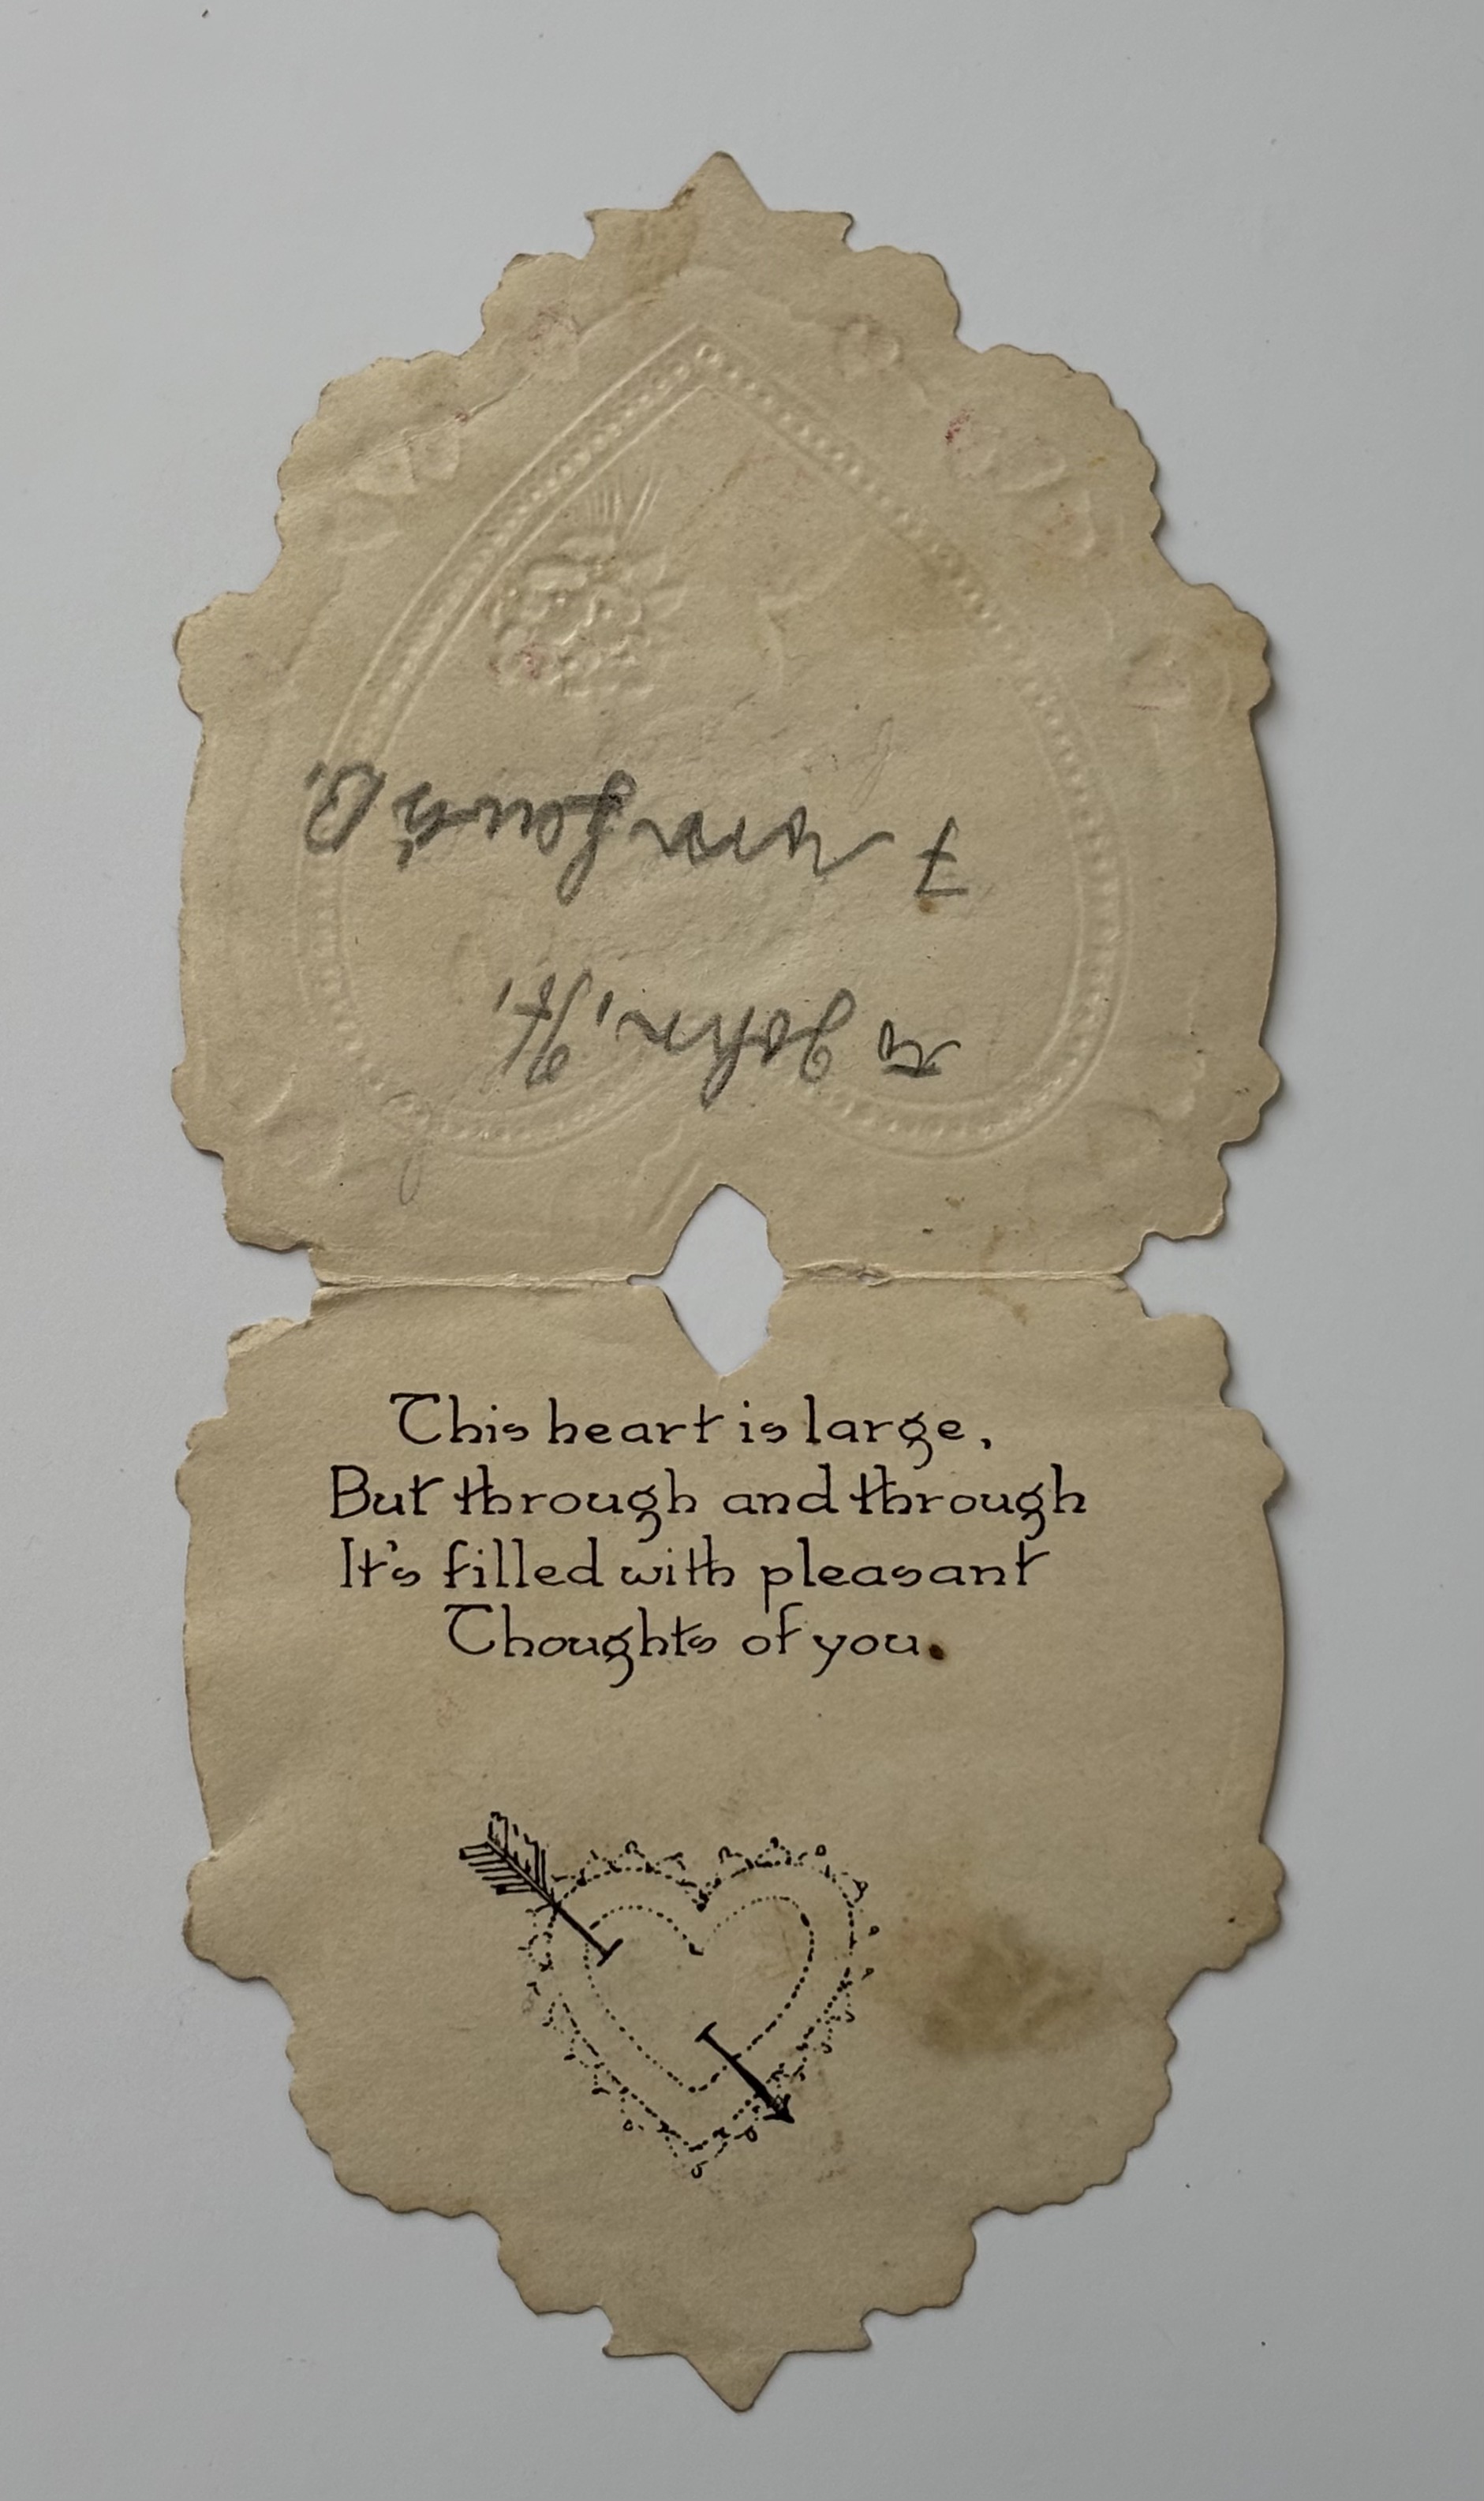 to John, H,
F rom Louis B.
This heart is large,
But through and through
It's filled with pleasant
Thoughts of you.